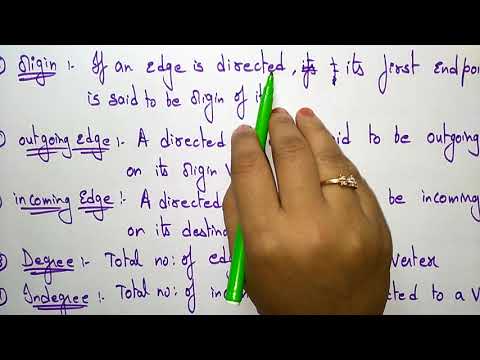 Origin :- If an edge is directed, its first endpo
is said to be origin of it
outgoing edge :- A directed to be outgoing
on its origin
incoming Edge :- A directed be incoming
on its destin
Degree :- Total no: of ed vertex
Indegree :- Total no: of in cted to a v